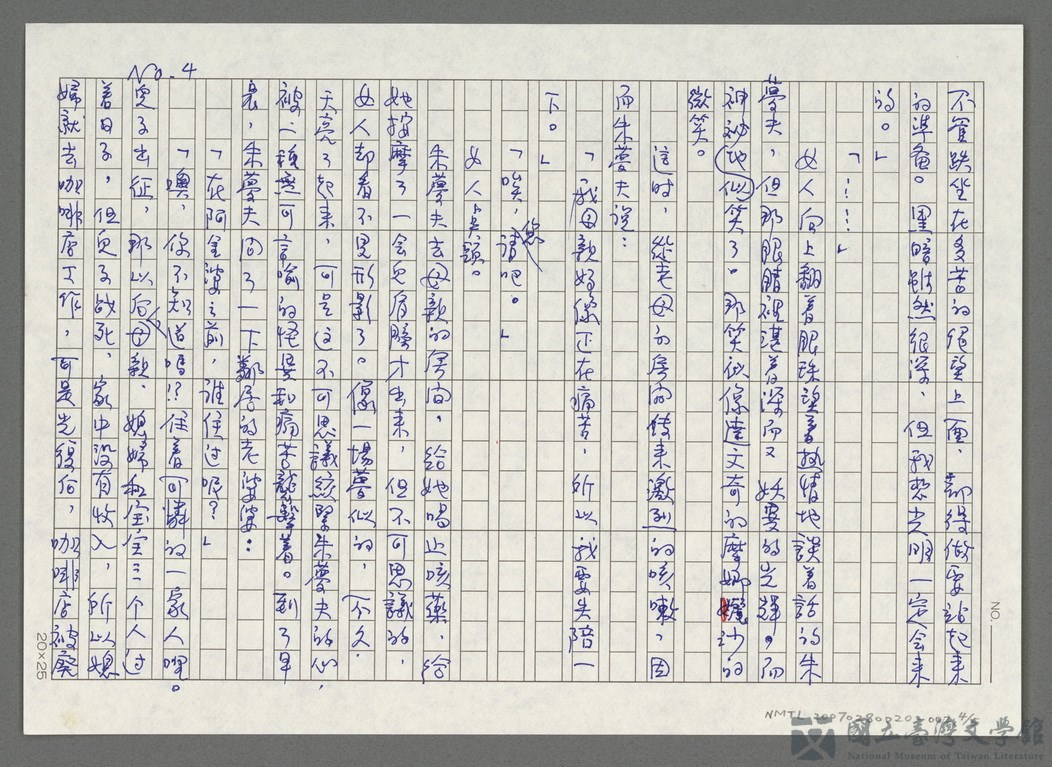 No. 4
不管跌坐在多苦的絕望上面，都得做要站起來
的準備。黑暗雖然很深，但我想光明一定會來
的。」
「……」
女人向上翻着眼珠望着熱情地談着話的朱
夢夫，但那眼睛裡湛着深而又妖要的光輝。而
神祕地似笑了。那笑似像達文奇的摩娜麗沙的
微笑。
這時，從老母的房間傳來激烈的咳嗽，因
而朱夢夫說：
「我母親好像正在痛苦，所以我要失陪一
下。」
「唉，您請吧。」
女人點頭。
朱夢夫去母親的房間，給她喝止咳藥，給
她按摩了一會兒肩膀才出來，但不可思議的，
女人却看不見形影了。像一場夢似的，不久，
天亮了起來，可是這不可思議綁緊朱夢夫的心，
被一種無可言喻的怪異和痛苦襲擊着。到了早
晨，朱夢夫問了一下鄰居的老婆婆：
「在阿金婆之前，誰住過呢？」
「噢，你不知道嗎!?住着可憐的一家人哩。
兒子出征，那以后母親、媳婦和宝宝三个人过
着日子，但兒子战死，家中沒有收入，所以媳
婦就去咖啡店工作，可是光復后，咖啡店被廢
20×25
NO.
NMTL 20070280020
國立臺灣文學館
National Museum of Taiwan Literature